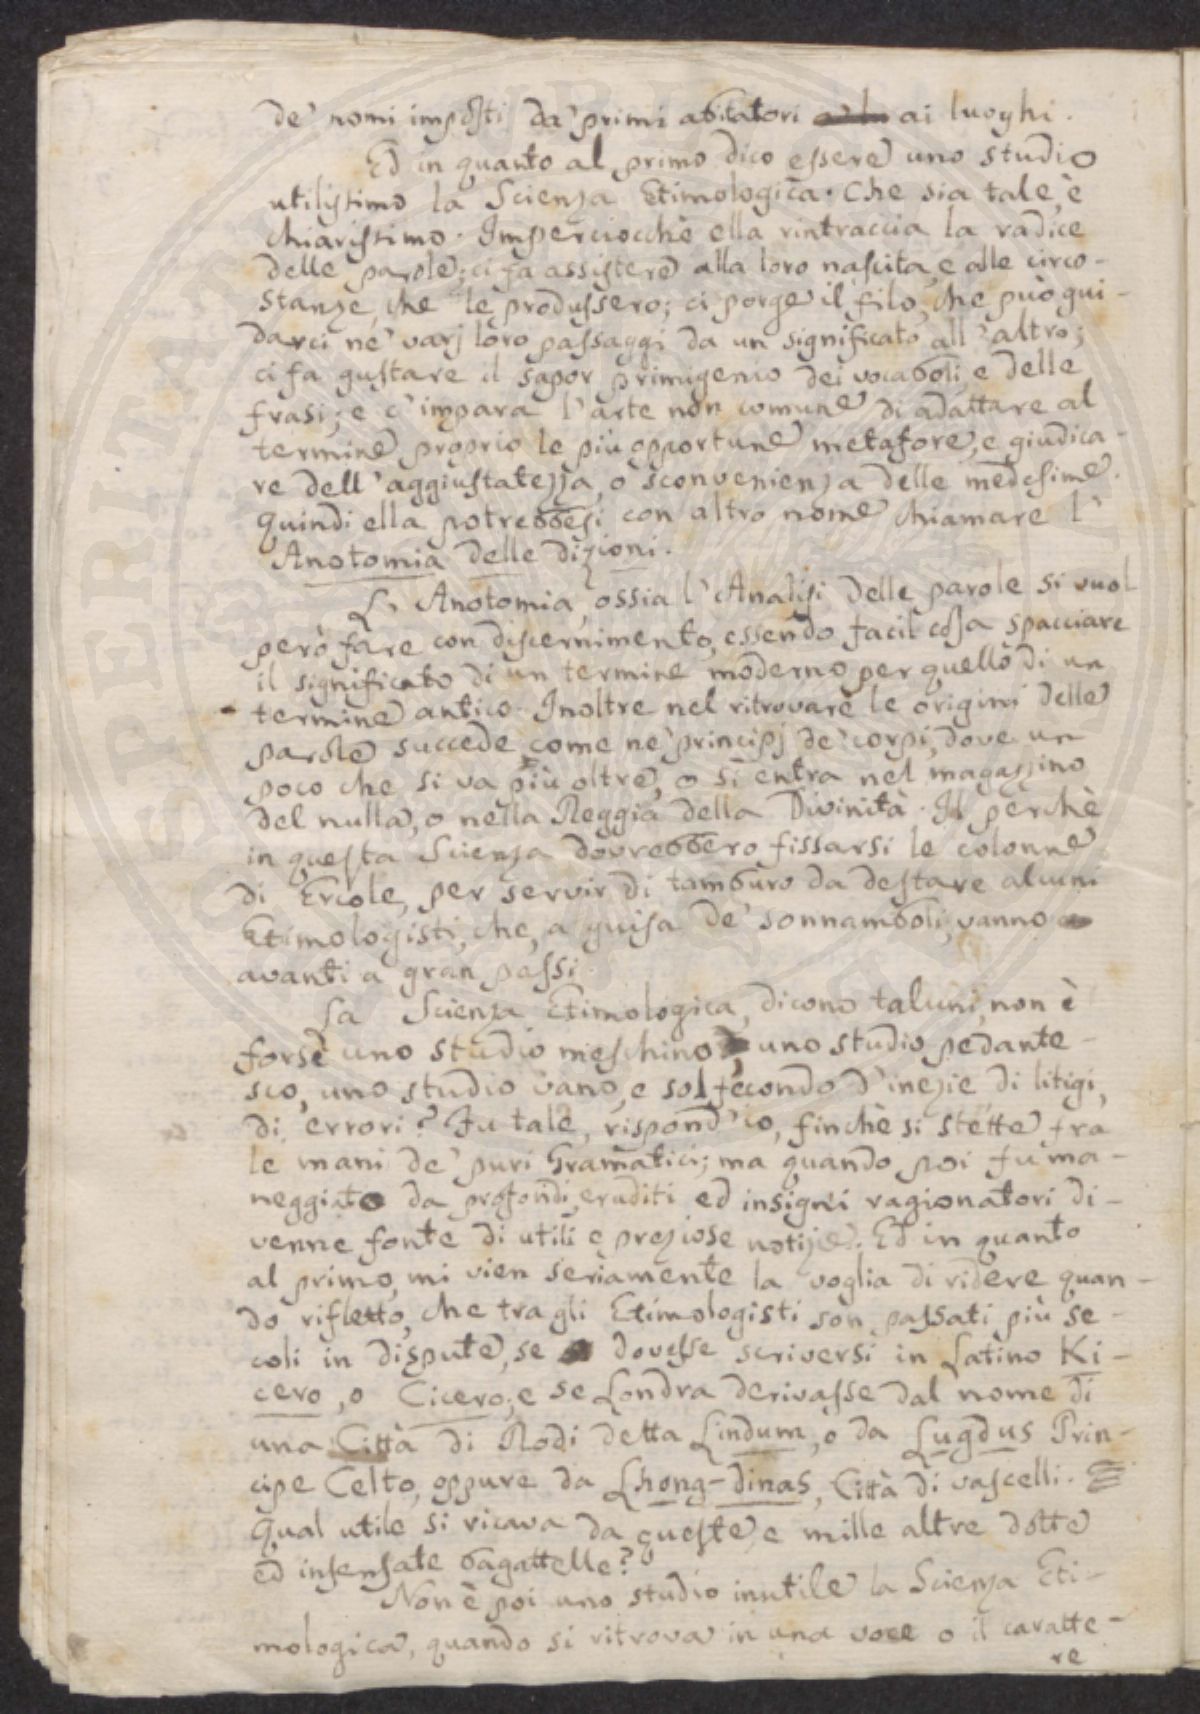 de' nomi imposti da' primi abitatori ai luoghi.
Ed in quanto al primo dico essere uno studio
utilissimo la Scienza Etimologica. Che sia tale, è
chiarissimo. Imperciocchè ella rintraccia la radice
delle parole; ci fa assistere alla loro nascita, e alle circo-
stanze, che le produssero; ci porge il filo, che può gui-
darci ne' varj loro passaggi da un significato all'altro;
ci fa gustare il sapor primigenio dei vocaboli, e delle
frasi; e c'impara l'arte non comune di adattare al
termine proprio le più opportune metafore, e giudica-
re dell'aggiustatezza, o sconvenienza delle medesime.
Quindi ella potrebbesi con altro nome chiamare l'
Anotomia delle dizioni.
L'Anotomia, ossia l'Analisi delle parole si vuol
però fare con discernimento, essendo facil cosa spacciare
il significato di un termine moderno per quello di un
termine antico. Inoltre nel ritrovare le origini delle
parole succede, come ne' principj de' corpi, dove un
poco che si va più oltre, o si entra nel magazzino
del nulla, o nella Reggia della Divinità. Il perchè
in questa Scienza dovrebbero fissarsi le colonne
di Ercole, per servir di tamburo da destare alcuni
Etimologisti, che, a guisa de' sonnamboli, vanno
avanti a gran passi.
La Scienza Etimologica, dicono taluni, non è
forse uno studio meschino, uno studio pedante-
sco, uno studio vano, e sol fecondo d'inezie di litigi,
di errori? Fu tale, rispond'io, finchè si stette fra
le mani de' puri Gramatici; ma quando poi fu ma-
neggiato da profondi eruditi ed insigni ragionatori di-
venne fonte di utili e preziose notizie. Ed in quanto
al primo, mi vien seriamente la voglia di ridere quan-
do rifletto, che tra gli Etimologisti son passati più se-
coli in dispute, se dovesse scriversi in Latino Ki-
cero, o Cicero; e se Londra derivasse dal nome di
una Città di Rodi detta Lindum, o da Lugdus Prin-
cipe Celto, oppure da Lhong-dinas, Città di vascelli.
Qual utile si ricava da queste, e mille altre dotte
ed insensate bagattelle?
Non è poi uno studio inutile la Scienza Eti-
mologica, quando si ritrova in una voce o il caratte-
re
SPERITATI